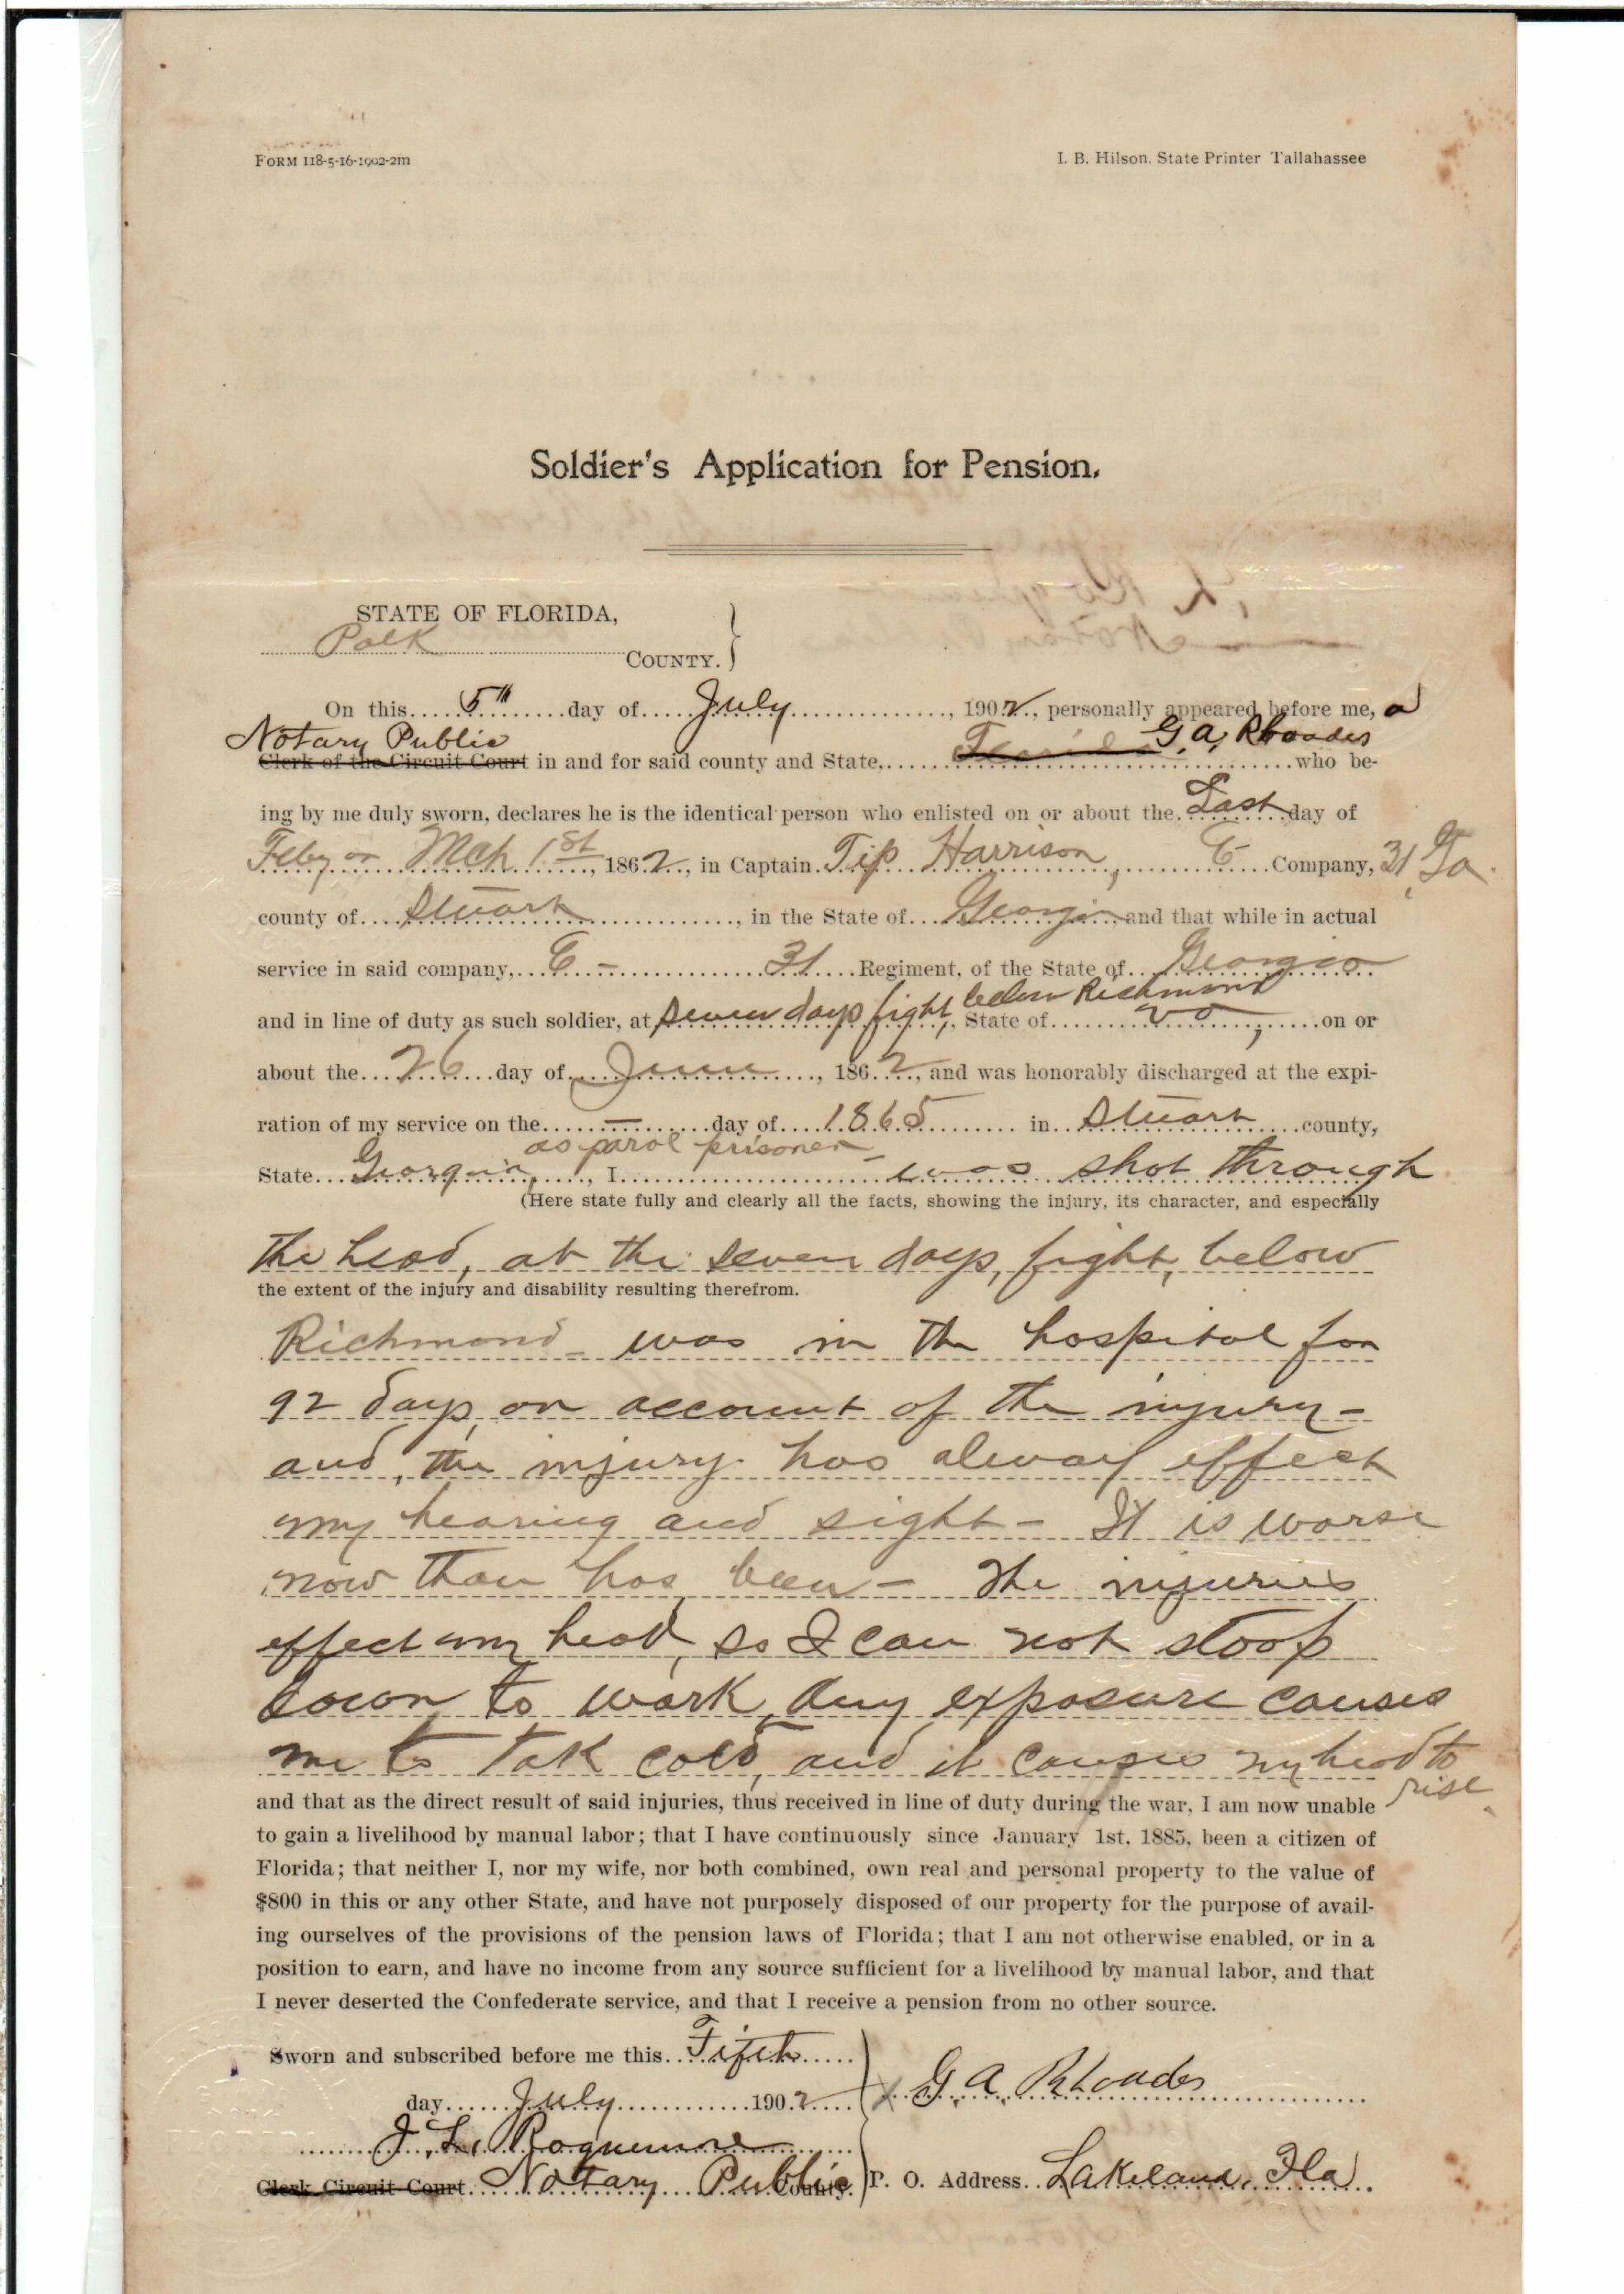 FORM 118-5-16-1902-2m I. B. Hilson. State Printer Tallahassee
Soldier's Application for Pension.
STATE OF FLORIDA,
Polk COUNTY.
On this 5th day of July, 1902, personally appeared before me, a
Notary Public G. A. Rhoades
Clerk of the Circuit Court in and for said county and State, who be-
ing by me duly sworn, declares he is the identical person who enlisted on or about the Last day of
Feby or Mch 1st, 1862, in Captain Tip Harrison, E Company, 31 Ga.
county of Stuart, in the State of Georgia and that while in actual
service in said company, E - 31 Regiment, of the State of Georgia
below Richmond
and in line of duty as such soldier, at seven days fight, State of va, on or
about the 26 day of June, 1862, and was honorably discharged at the expi-
ration of my service on the — day of 1865 in Stuart county,
as parol prisoner -
State Georgia, I was shot through
(Here state fully and clearly all the facts, showing the injury, its character, and especially
the head, at the seven days, fight, below
the extent of the injury and disability resulting therefrom.
Richmond - was in the hospital for
92 days, on account of the injury -
and, the injury has alway effect
my hearing and sight - It is worse
now than has been - The injuries
effect my head, so I can not stoop
down to work, Any exposure causes
me to tak cold, and it causes my head to
rise
and that as the direct result of said injuries, thus received in line of duty during the war, I am now unable
to gain a livelihood by manual labor; that I have continuously since January 1st, 1885, been a citizen of
Florida; that neither I, nor my wife, nor both combined, own real and personal property to the value of
$800 in this or any other State, and have not purposely disposed of our property for the purpose of avail-
ing ourselves of the provisions of the pension laws of Florida; that I am not otherwise enabled, or in a
position to earn, and have no income from any source sufficient for a livelihood by manual labor, and that
I never deserted the Confederate service, and that I receive a pension from no other source.
Sworn and subscribed before me this Fifth
day July 1902 x G. A. Rhoades
J. L. Roquemore
Clerk Circuit Court Notary Public County. P. O. Address Lakeland, Fla.